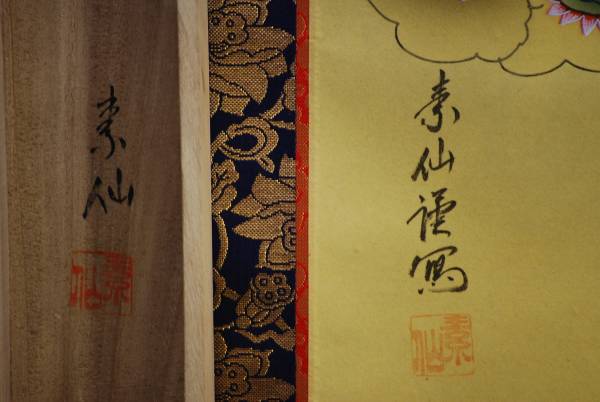 素仙謹写
素仙
素仙
素仙